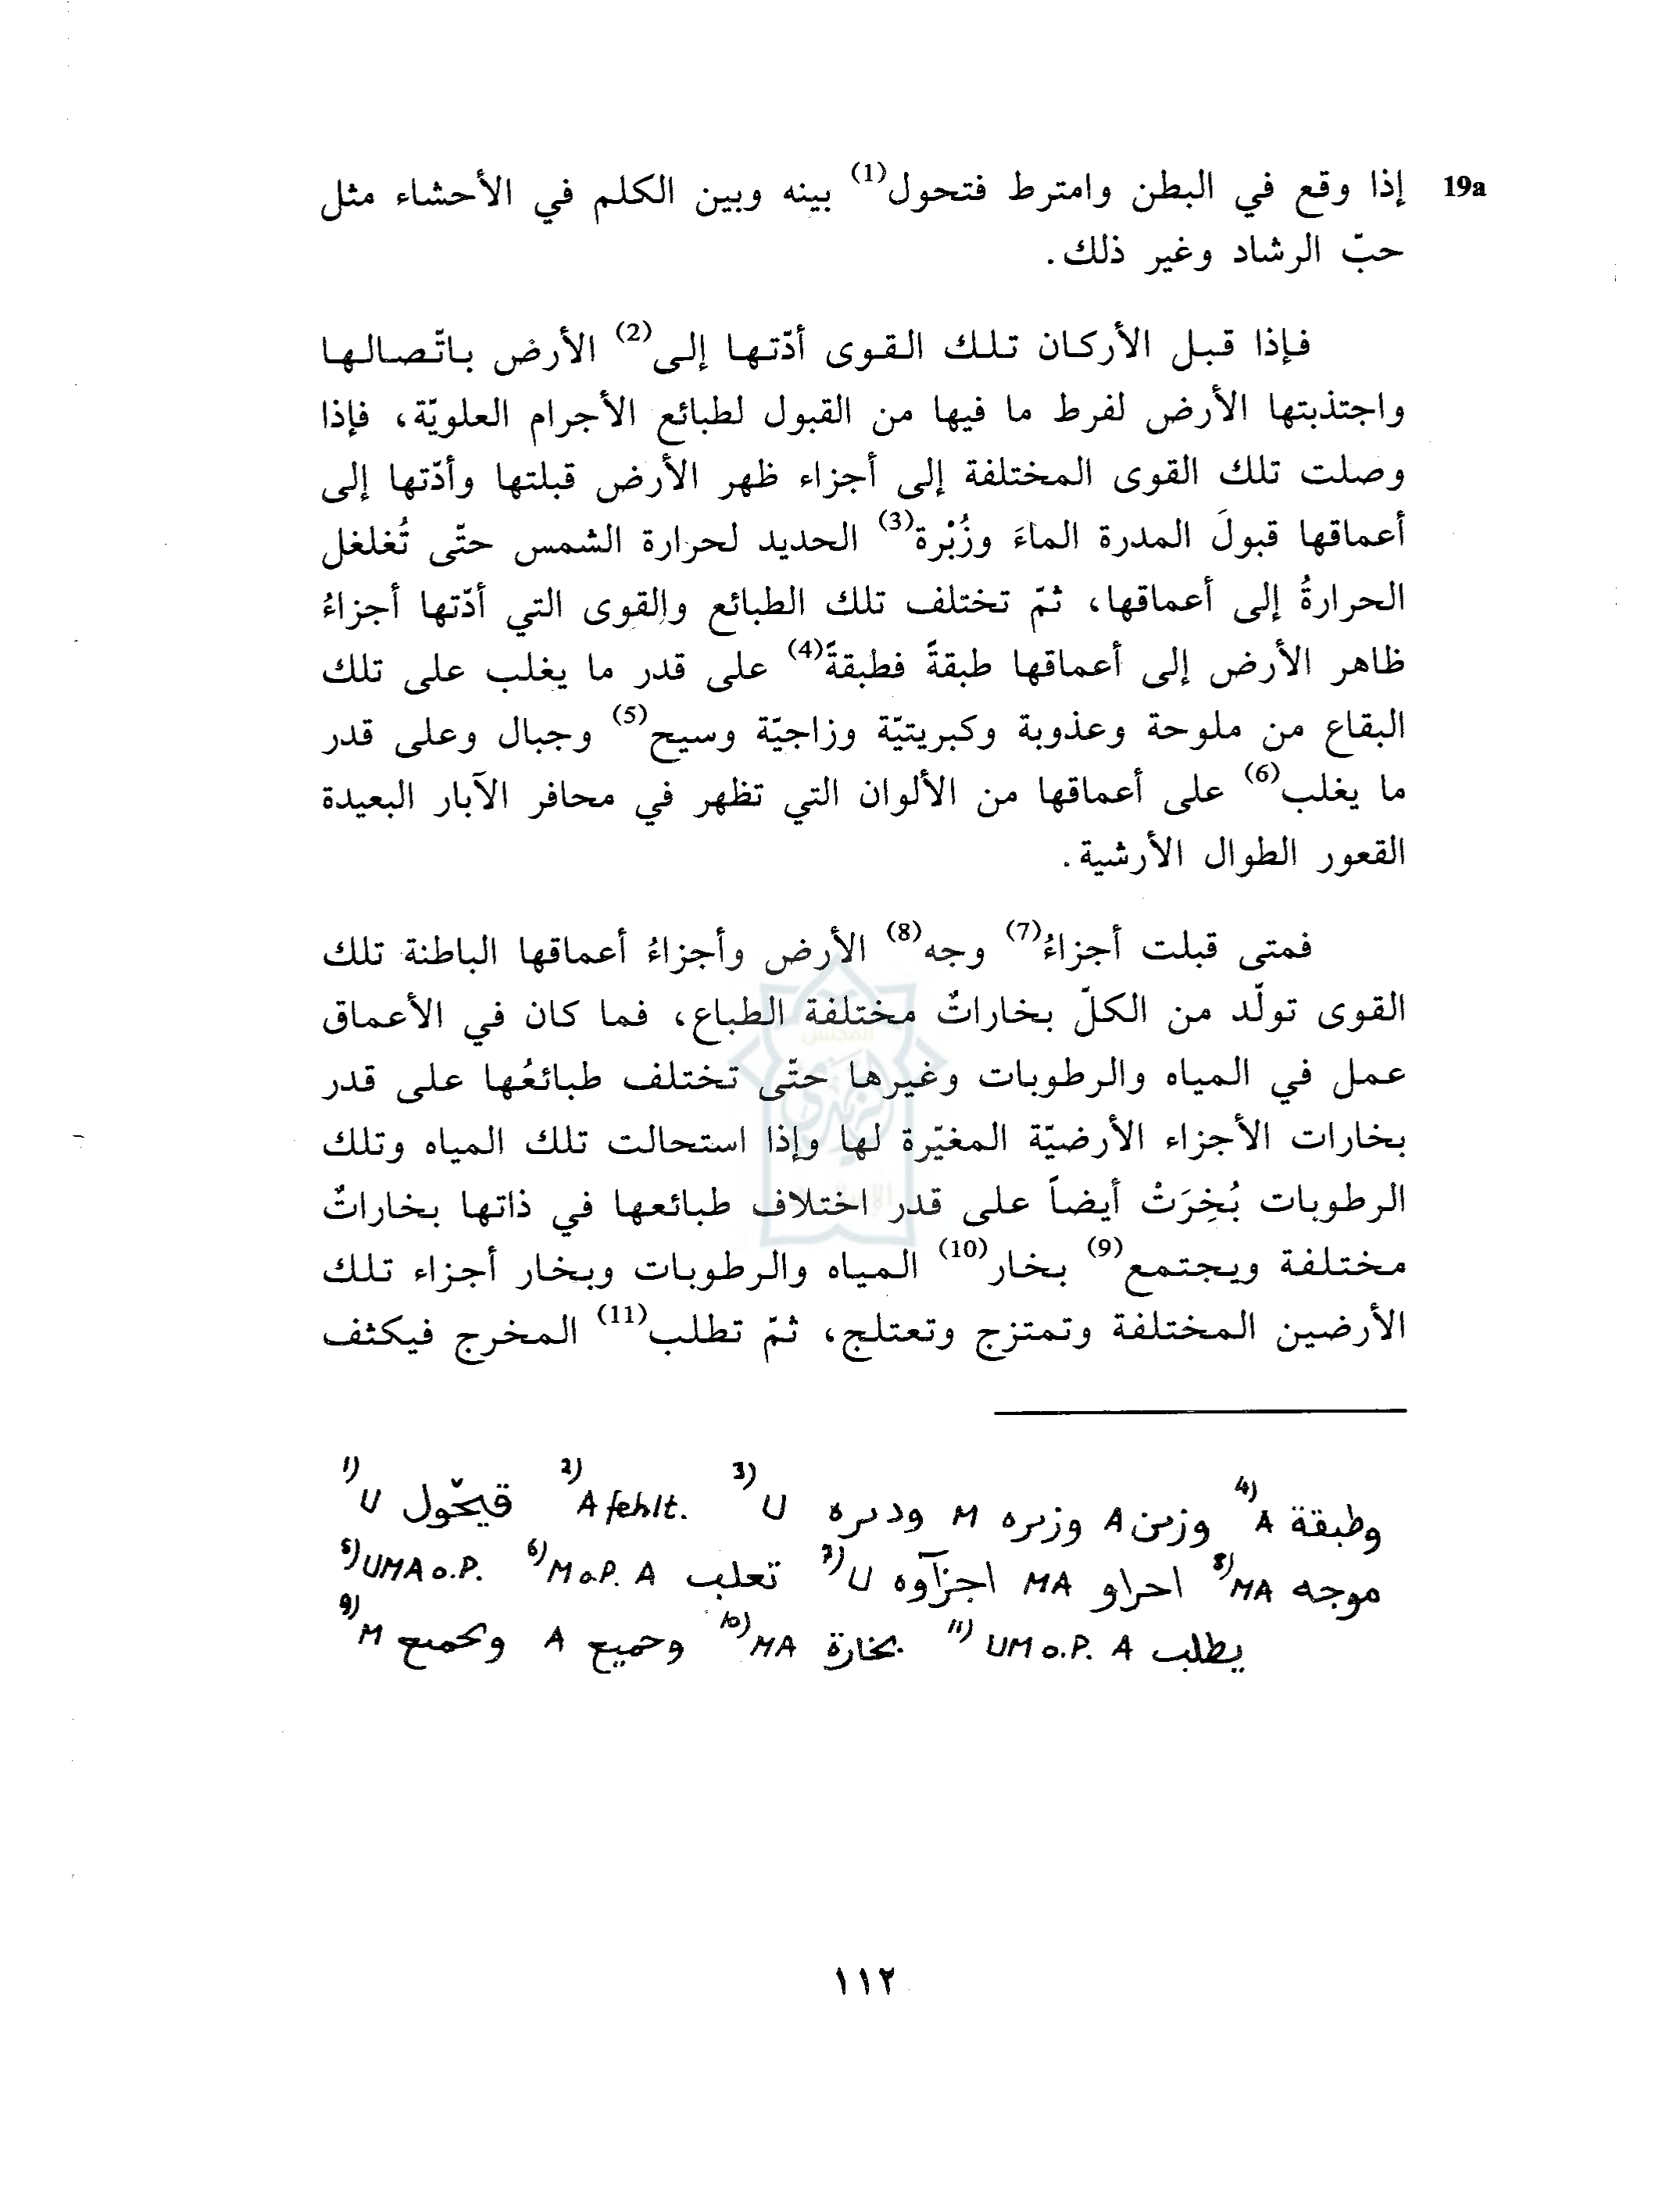 19a إذا وقع في البطن وامترط فتحول(1) بينه وبين الكلم في الأحشاء مثل
حبّ الرشاد وغير ذلك.
فإذا قبل الأركان تلك القوى أدّتها إلى(2) الأرض باتّصالها
واجتذبتها الأرض لفرط ما فيها من القبول لطبائع الأجرام العلويّة، فإذا
وصلت تلك القوى المختلفة إلى أجزاء ظهر الأرض قبلتها وأدّتها إلى
أعماقها قبولَ المدرة الماءَ وزُبْرة(3) الحديد لحرارة الشمس حتّى تُغلغل
الحرارةُ إلى أعماقها، ثمّ تختلف تلك الطبائع والقوى التي أدّتها أجزاءُ
ظاهر الأرض إلى أعماقها طبقةً فطبقةً(4) على قدر ما يغلب على تلك
البقاع من ملوحة وعذوبة وكبريتيّة وزاجيّة وسيح(5) وجبال وعلى قدر
ما يغلب(6) على أعماقها من الألوان التي تظهر في محافر الآبار البعيدة
القعور الطوال الأرشية.
فمتى قبلت أجزاءُ(7) وجه(8) الأرض وأجزاءُ أعماقها الباطنة تلك
القوى تولّد من الكلّ بخاراتٌ مختلفة الطباع، فما كان في الأعماق
عمل في المياه والرطوبات وغيرها حتّى تختلف طبائعُها على قدر
بخارات الأجزاء الأرضيّة المغيّرة لها وإذا استحالت تلك المياه وتلك
الرطوبات بُخِرَتْ أيضاً على قدر اختلاف طبائعها في ذاتها بخاراتٌ
مختلفة ويجتمع(9) بخار(10) المياه والرطوبات وبخار أجزاء تلك
الأرضين المختلفة وتمتزج وتعتلج، ثمّ تطلب(11) المخرج فيكثف
1) U فيحّول 2) A fehlt. 3) U ودىره M وزىره A وزىں 4) A وطبقة
5) UMA o.P. 6) M o.P. A تعلب 7) U اجزآوه MA احراو 8) MA موجه
9) M وىحمىع A وحميع 10) MA بخارة 11) UM o.P. A يطلب
١١٢